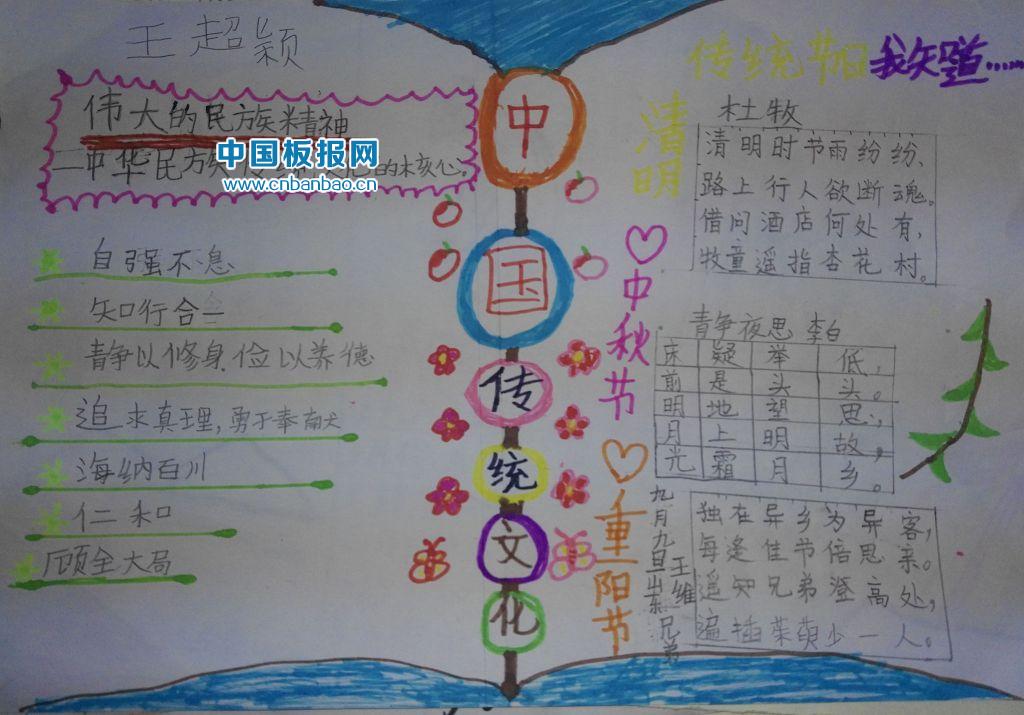 王超颖
伟大的民族精神
—中华民族传统文化的核心。
中国板报网
www.cnbanbao.cn
自强不息
知行合一
静以修身俭以养德
追求真理,勇于奉献
海纳百川
仁和
顾全大局
中
国
传
统
文
化
传统节日我知道……
清明
杜牧
清明时节雨纷纷、
路上行人欲断魂。
借问酒店何处有,
牧童遥指杏花村。
中秋节
静夜思 李白
床前明月光
疑是地上霜
举头望明月
低头思故乡。
重阳节
九月九日山东兄弟
王维
独在异乡为异客,
每逢佳节倍思亲。
遥知兄弟登高处,
遍插茱萸少一人。